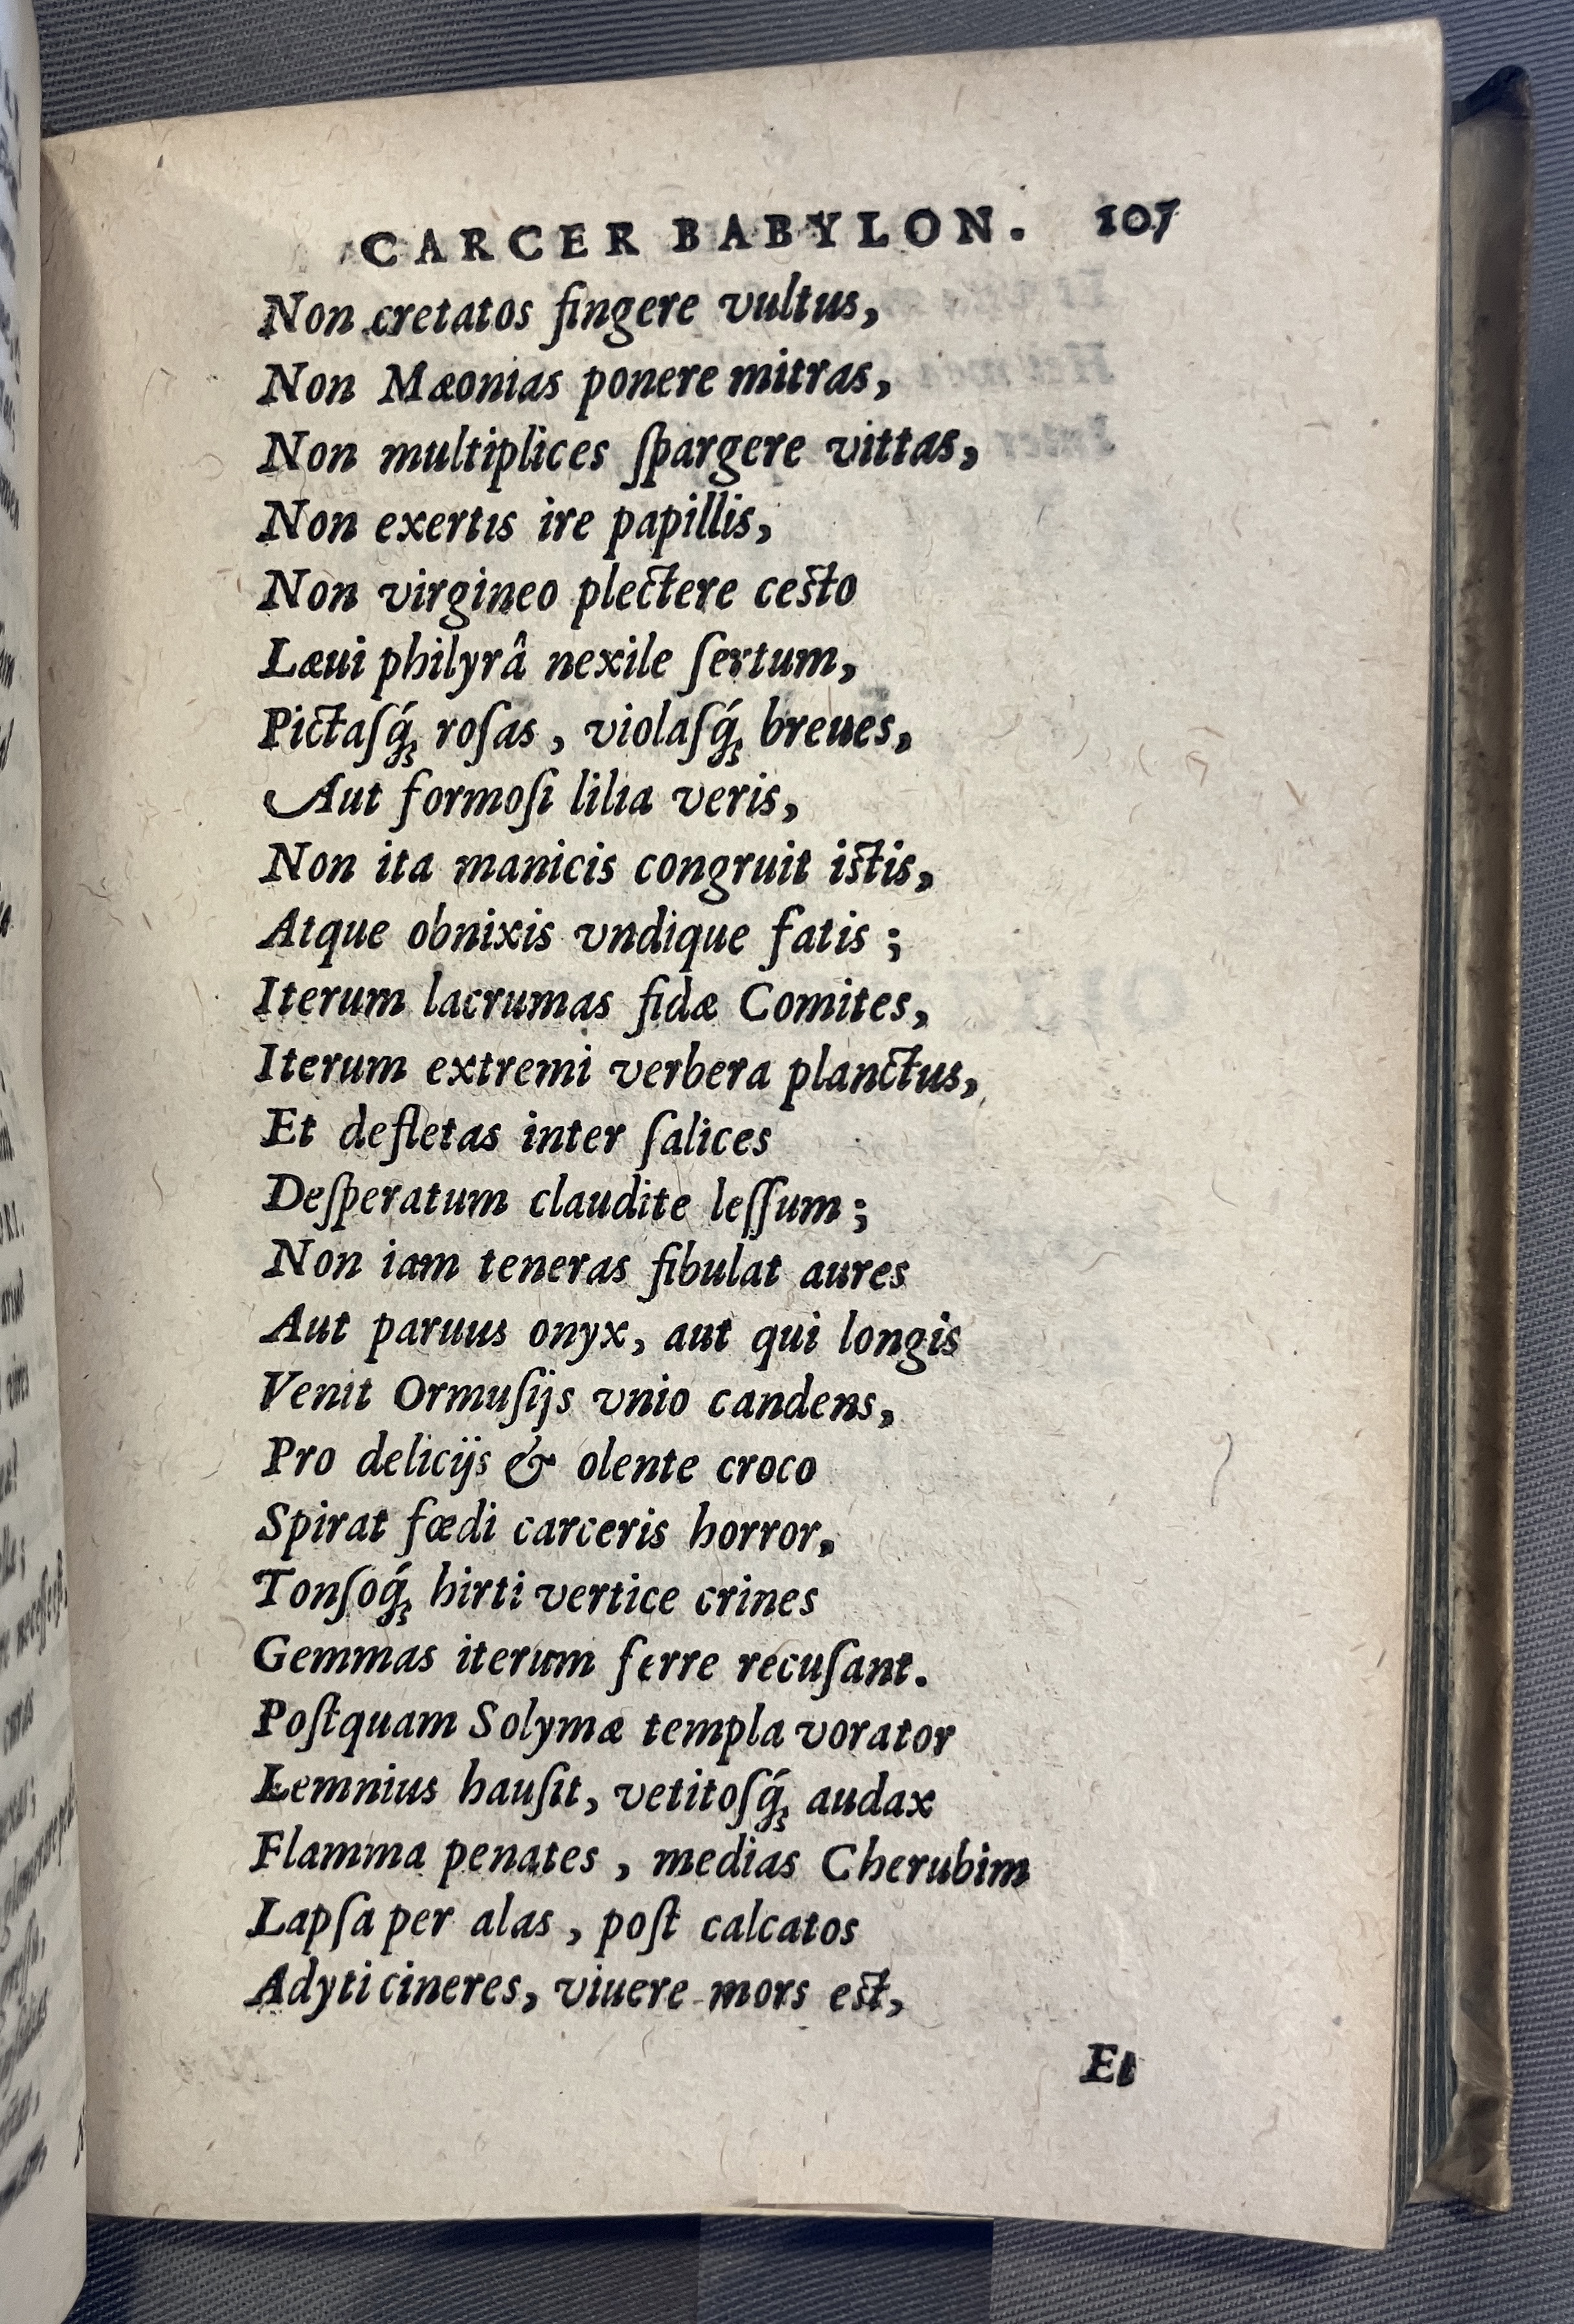 CARCER BABYLON. 107
Non cretatos fingere vultus,
Non Mæonias ponere mitras,
Non multiplices ſpargere vittas,
Non exertis ire papillis,
Non virgineo plectere cesto
Læui philyrâ nexile ſertum,
Pictaſq́; roſas, violaſq́; breues,
Aut formoſi lilia veris,
Non ita manicis congruit istis,
Atque obnixis vndique fatis;
Iterum lacrumas fidæ Comites,
Iterum extremi verbera planctus,
Et defletas inter ſalices
Deſperatum claudite leſſum;
Non iam teneras fibulat aures
Aut paruus onyx, aut qui longis
Venit Ormuſijs vnio candens,
Pro delicijs & olente croco
Spirat fœdi carceris horror,
Tonſoq́; hirti vertice crines
Gemmas iterum ferre recuſant.
Poſtquam Solymæ templa vorator
Lemnius hauſit, vetitoſq́; audax
Flamma penates, medias Cherubim
Lapſa per alas, poſt calcatos
Adyti cineres, viuere mors est,
Et